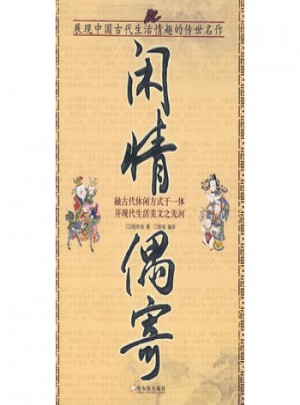 展现中国古代生活情趣的传世名作
闲情偶寄
融古代休闲方式于一体
开现代生活美文之先河
哈尔滨出版社